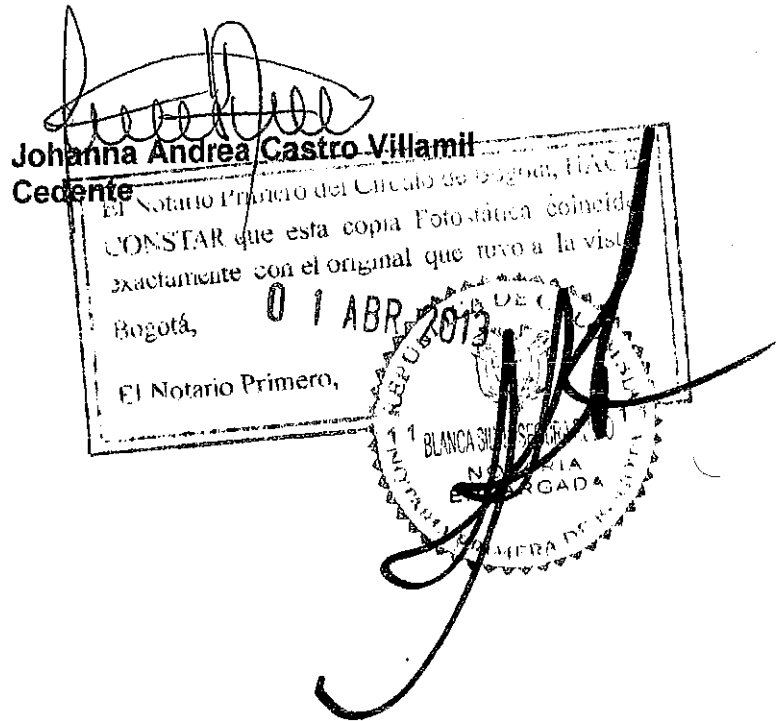 Johanna Andrea Castro Villamil
Cedente
El Notario Primero del Circulo de Bogotá, HACE
CONSTAR que esta copia Fotostática coincide
exactamente con el original que tuvo a la vista
Bogotá,
0 1 ABR 2013
El Notario Primero,
REPÚBLICA DE
BLANCA
NOTARIA
ENCARGADA
NOTARIA PRIMERA DE BOGOTA